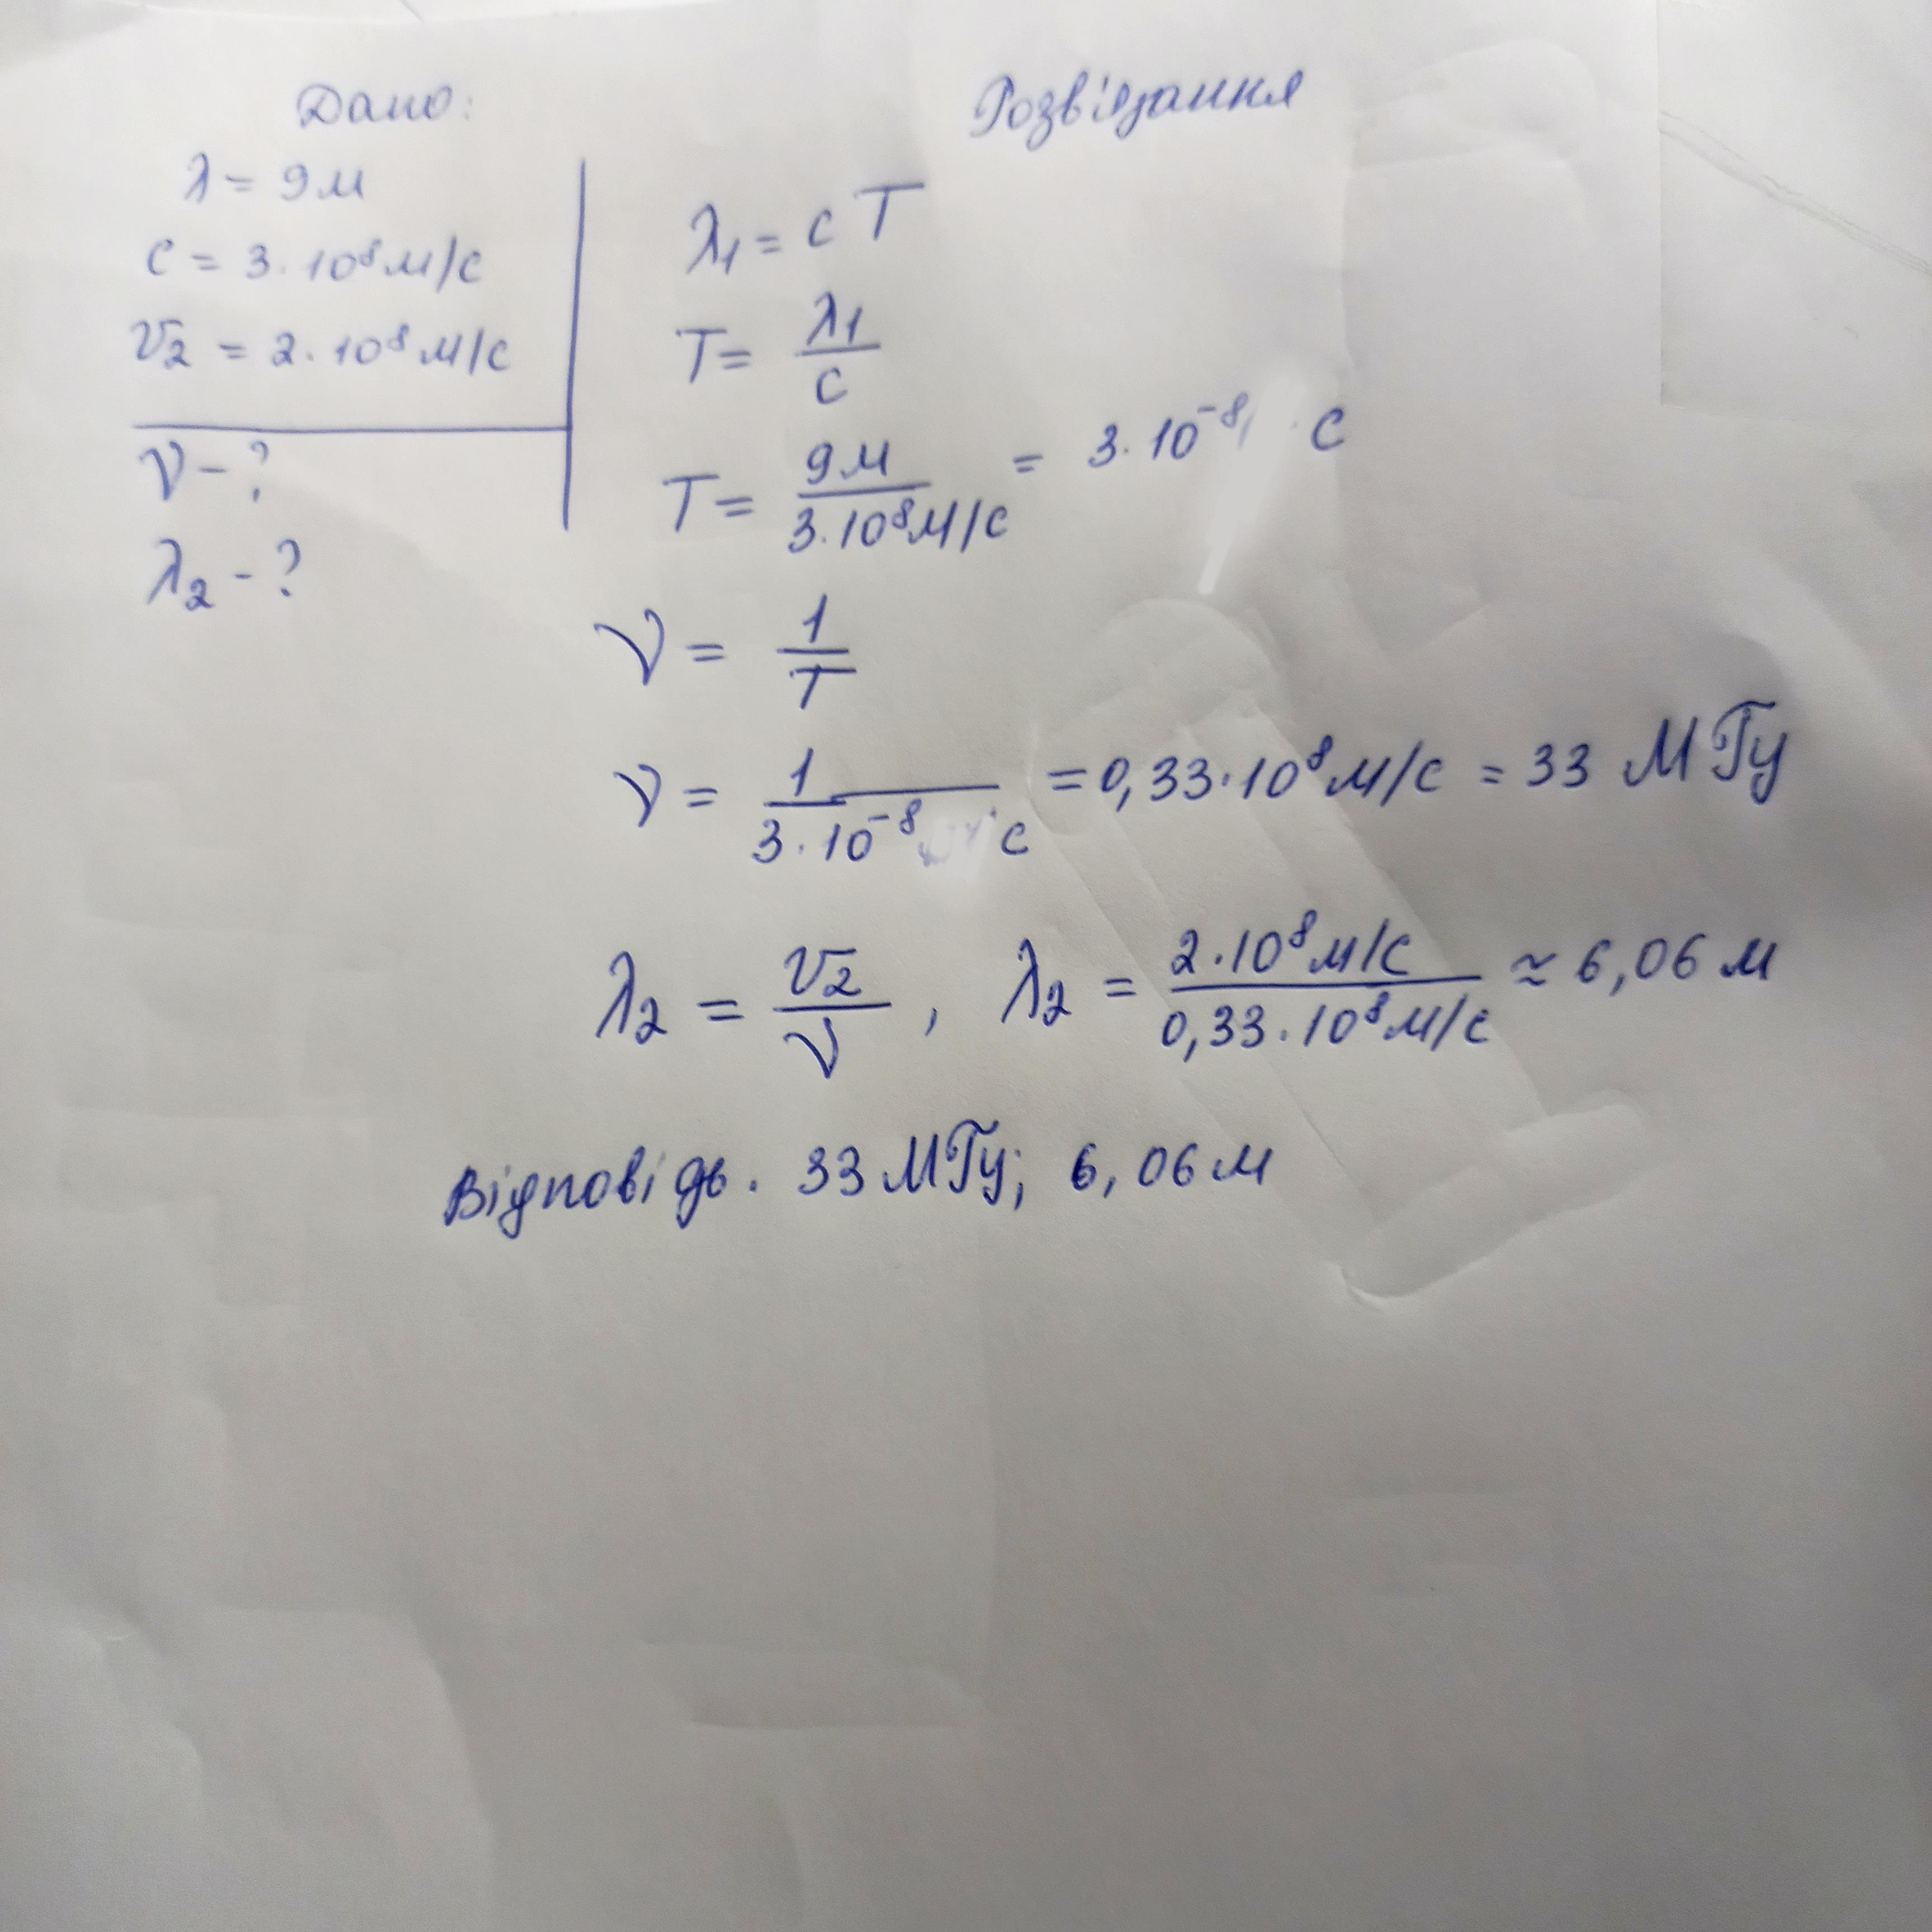 Дано:
λ = 9м
c = 3·10⁸м/с
v₂ = 2·10⁸м/с
ν - ?
λ₂ - ?
Розв'язання
λ₁ = c T
T = λ₁/c
T = 9м/3·10⁸м/с = 3·10⁻⁸ с
ν = 1/T
ν = 1/3·10⁻⁸ с = 0,33·10⁸м/с = 33 МГц
λ₂ = v₂/ν, λ₂ = 2·10⁸м/с/0,33·10⁸м/с ≈ 6,06 м
Відповідь. 33 МГц; 6,06 м